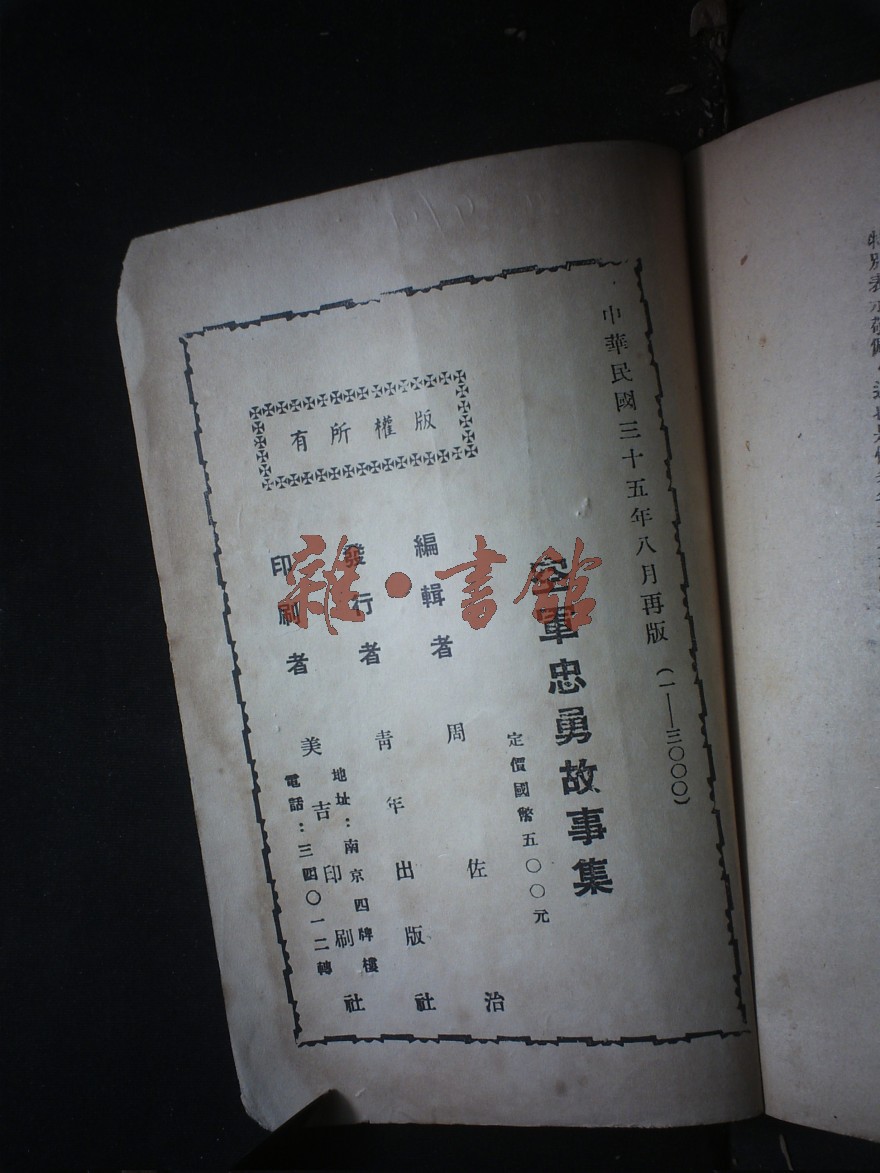 中華民國三十五年八月再版（一——三〇〇〇）
空軍忠勇故事集
定價國幣五〇〇元
編輯者 周佐治
發行者 青年出版社
地址：南京四牌樓
印刷者 美吉印刷社
電話：三四〇一二轉
版權所有
雜·書館
特別表示敬佩